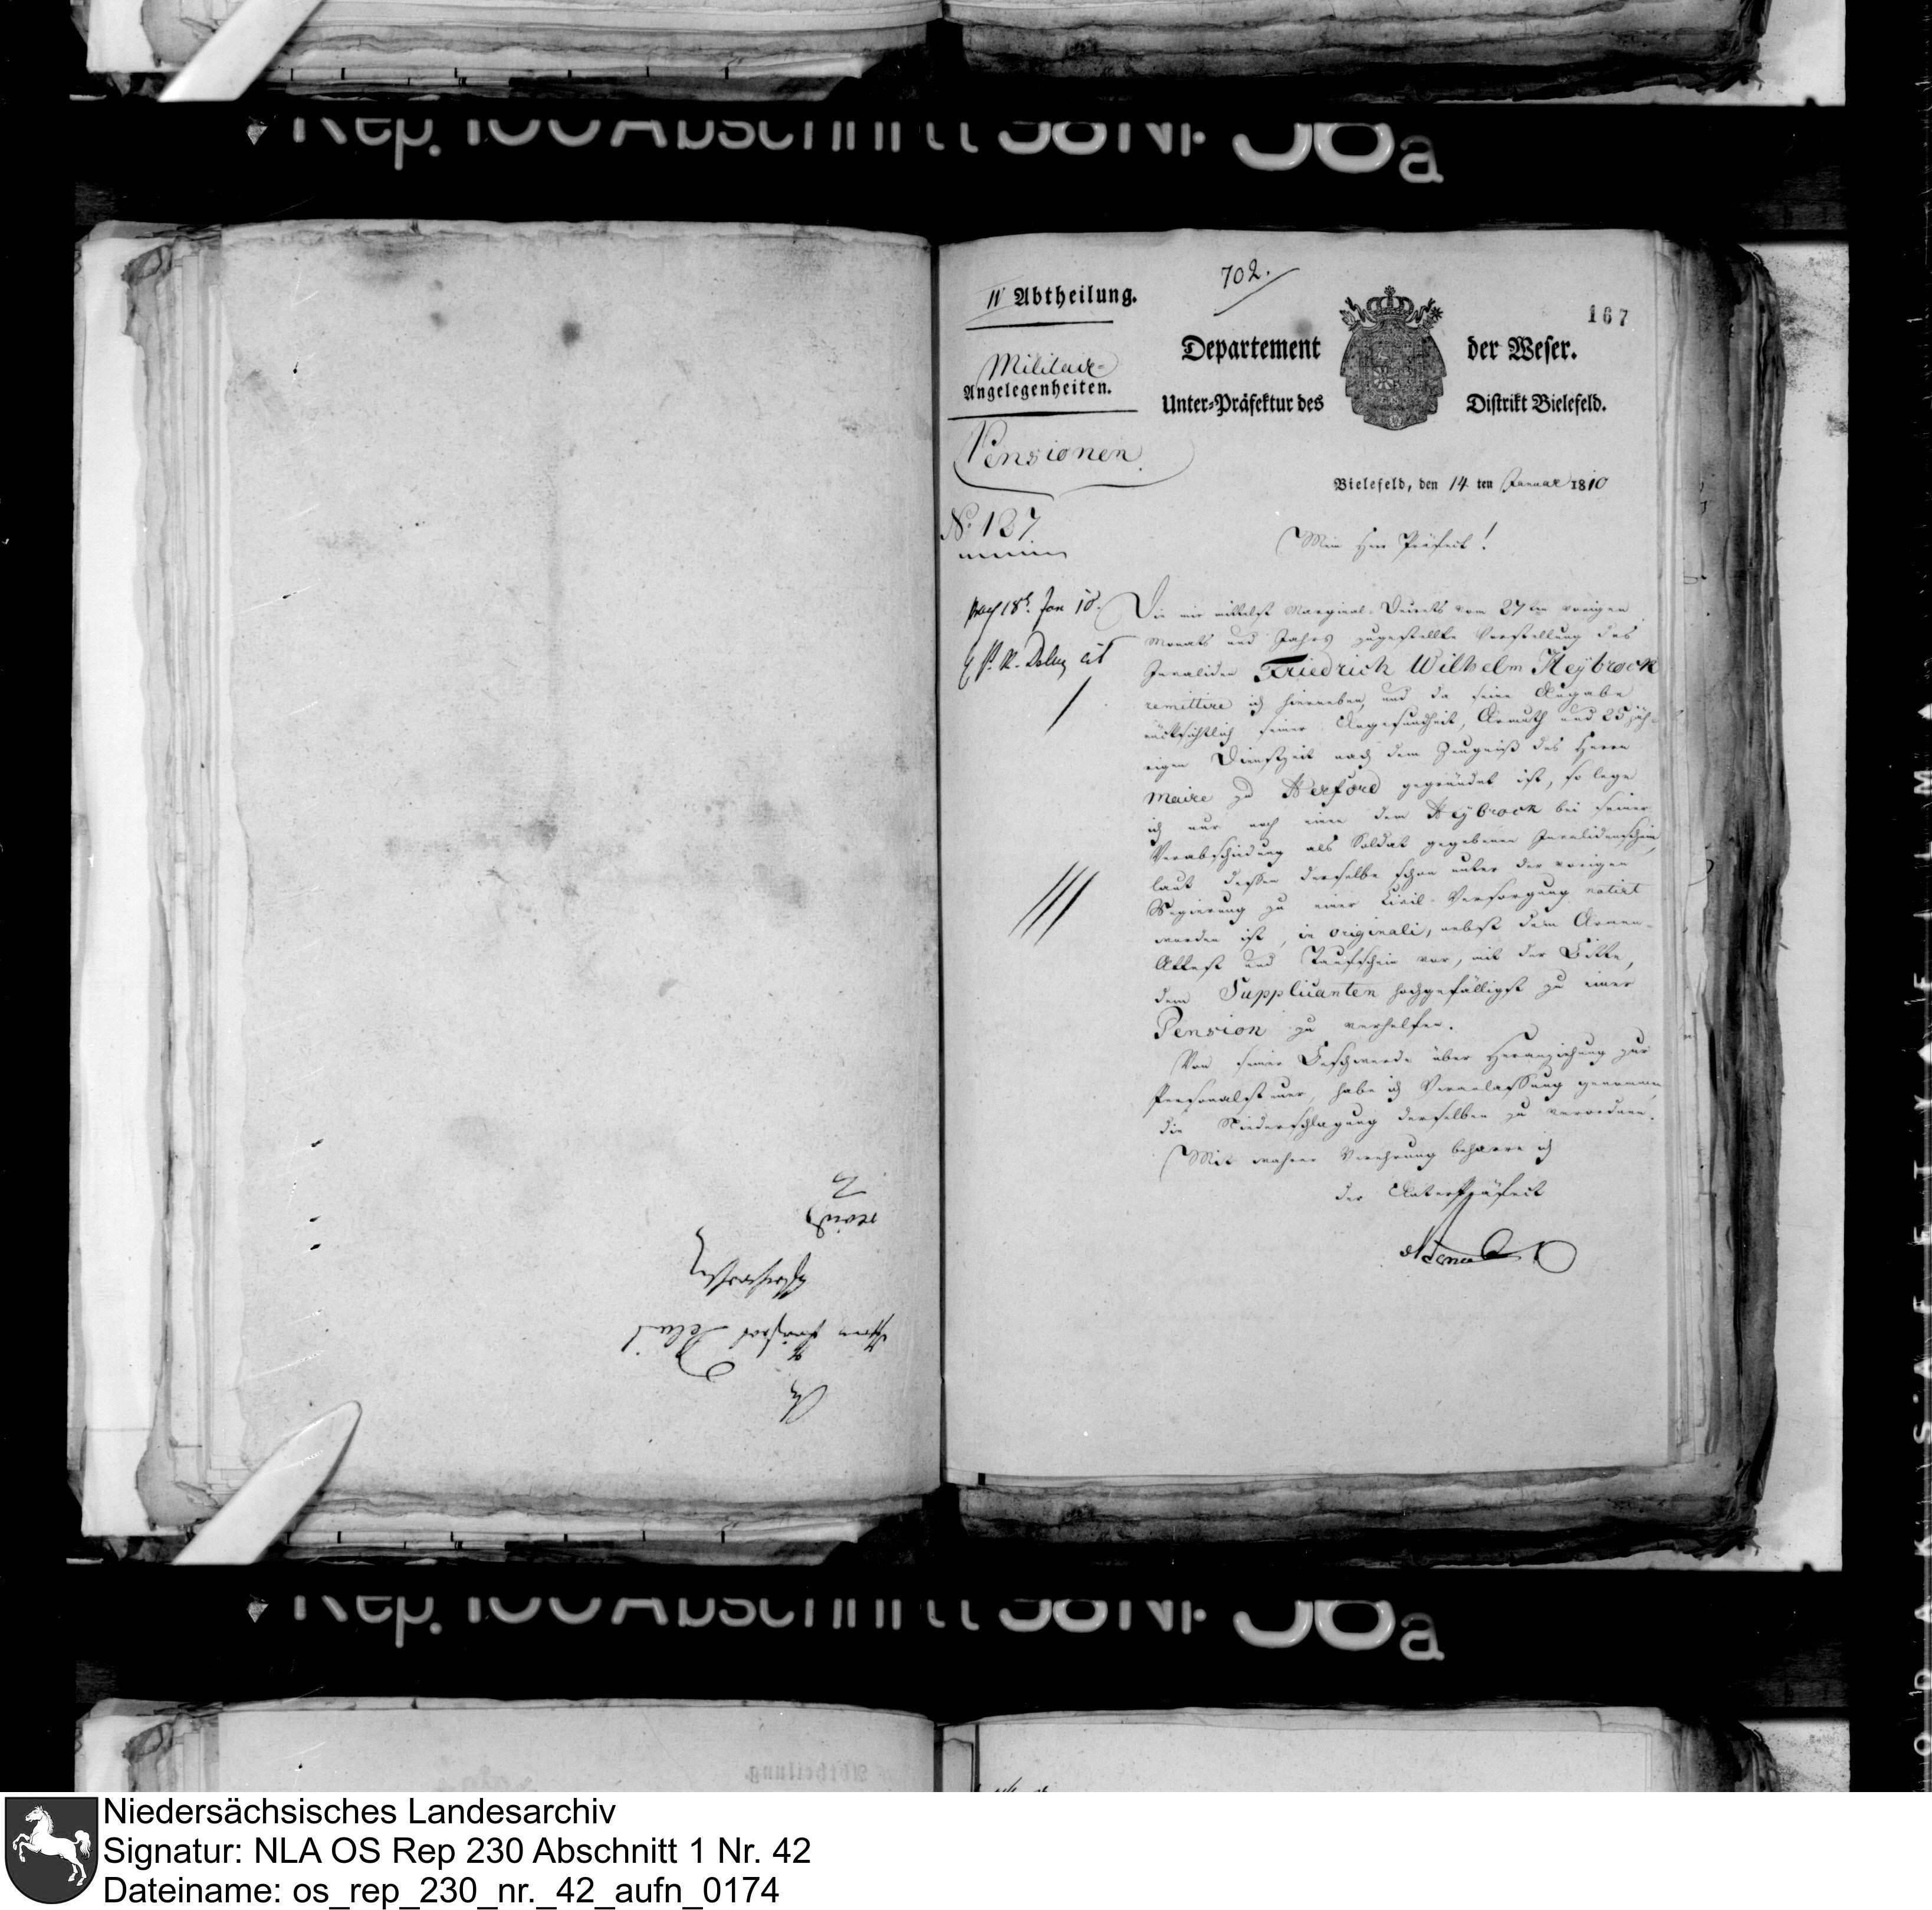 Rep. 100 Abschnitt 58 Nr. 38a
702.
167
IV Abtheilung.
Departement der Weser.
Militair-
Angelegenheiten.
Unter-Präfektur des Distrikt Bielefeld.
Pensionen.
Bielefeld, den 14 ten Januar 1810
No. 137.
Mein Herr Präfect!
18t. Jan 10.
Die mir mittelst Marginal-Decrets vom 27ten vorigen
Monats und Jahrs zugestellte Vorstellung des
Invaliden Friedrich Wilhelm Heÿbrock
remittire ich hierneben, und da seine Angabe
rücksichtlich seiner Ungesundheit, Armuth und 25 jäh-
rigen Dienstzeit nach dem Zeugniß des Herrn
Maire zu Herford gegründet ist, so lege
ich nur noch einen dem Heÿbrock bei seiner
Verabschiedung als Soldat gegebenen Invalidenschein,
laut dessen derselbe schon unter der vorigen
Regierung zu einer Civil-Versorgung notirt
worden ist, in originali, nebst dem Armen-
Attest und Taufschein vor, mit der Bitte,
dem Supplicanten hochgefälligst zu einer
Pension zu verhelfen.
Von seiner Beschwerde über Heranziehung zur
Personalsteuer, habe ich Veranlassung genommen,
die Niederschlagung derselben zu verordnen.
Mit wahrer Verehrung beharre ich
der Unterpräfect
Rep. 100 Abschnitt 58 Nr. 38a
Abtheilung.
Niedersächsisches Landesarchiv
Signatur: NLA OS Rep 230 Abschnitt 1 Nr. 42
Dateiname: os_rep_230_nr._42_aufn_0174